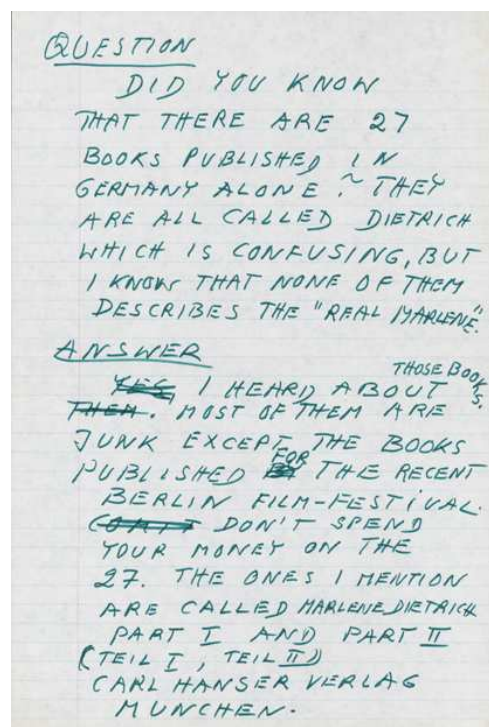 QUESTION
DID YOU KNOW
THAT THERE ARE 27
BOOKS PUBLISHED IN
GERMANY ALONE ~ THEY
ARE ALL CALLED DIETRICH
WHICH IS CONFUSING, BUT
I KNOW THAT NONE OF THEM
DESCRIBES THE "REAL MARLENE".
ANSWER
YES, I HEARD ABOUT THOSE BOOKS.
THEM. MOST OF THEM ARE
JUNK EXCEPT THE BOOKS
PUBLISHED FOR THE RECENT
BERLIN FILM-FESTIVAL.
DON'T SPEND
YOUR MONEY ON THE
27. THE ONES I MENTION
ARE CALLED MARLENE DIETRICH
PART I AND PART II
(TEIL I, TEIL II)
CARL HANSER VERLAG
MUNCHEN.